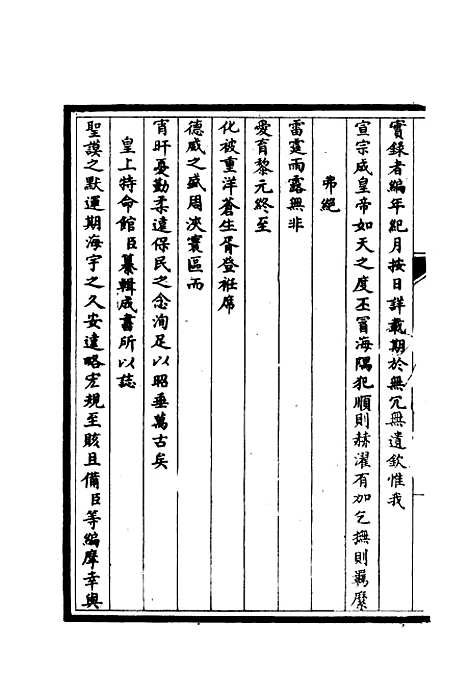 實錄者編年紀月按日詳載期於無冗無遺欽惟我
宣宗成皇帝如天之度丕冒海隅犯順則赫濯有加乞撫則羈縻
弗絕
雷霆雨露無非
愛育黎元終至
化被重洋蒼生胥登衽席
德威之盛周浹寰區而
宵旰憂勤柔遠保民之念洵足以昭垂萬古矣
皇上特命館臣纂輯成書所以誌
聖謨之默運期海宇之久安遠略宏規至賅且備臣等編摩幸與